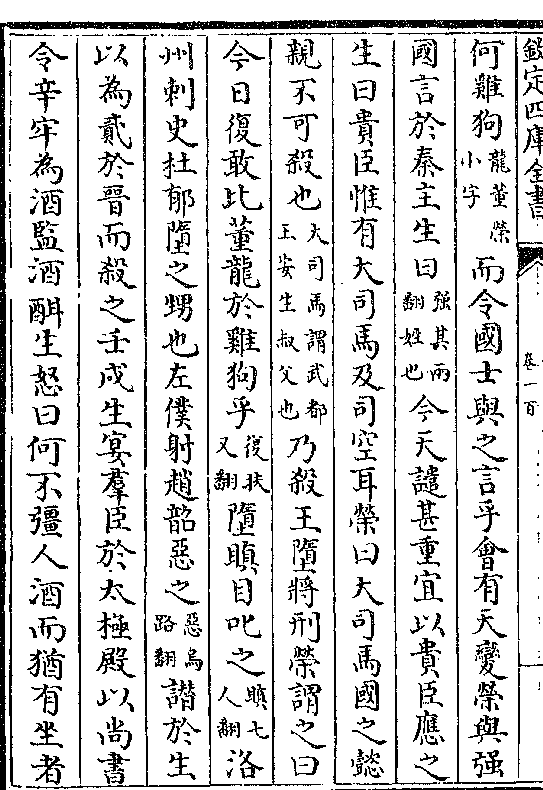 欽定四庫全書 卷一百
何雞狗龍董榮小字而令國士與之言乎會有天變榮與强
國言於秦主生曰强其兩翻姓也今天譴甚重宜以貴臣應之
生曰貴臣惟有大司馬及司空耳榮曰大司馬國之懿
親不可殺也大司馬謂武都王安生叔父也乃殺王墮將刑榮謂之曰
今日復敢比董龍於雞狗乎復扶又翻墮瞋目叱之瞋七人翻洛
州刺史杜郁墮之甥也左僕射趙韶惡之惡烏路翻譛於生
以為貳於晉而殺之壬戌生宴羣臣於太極殿以尚書
令辛牢為酒監酒酣生怒曰何不彊人酒而猶有坐者